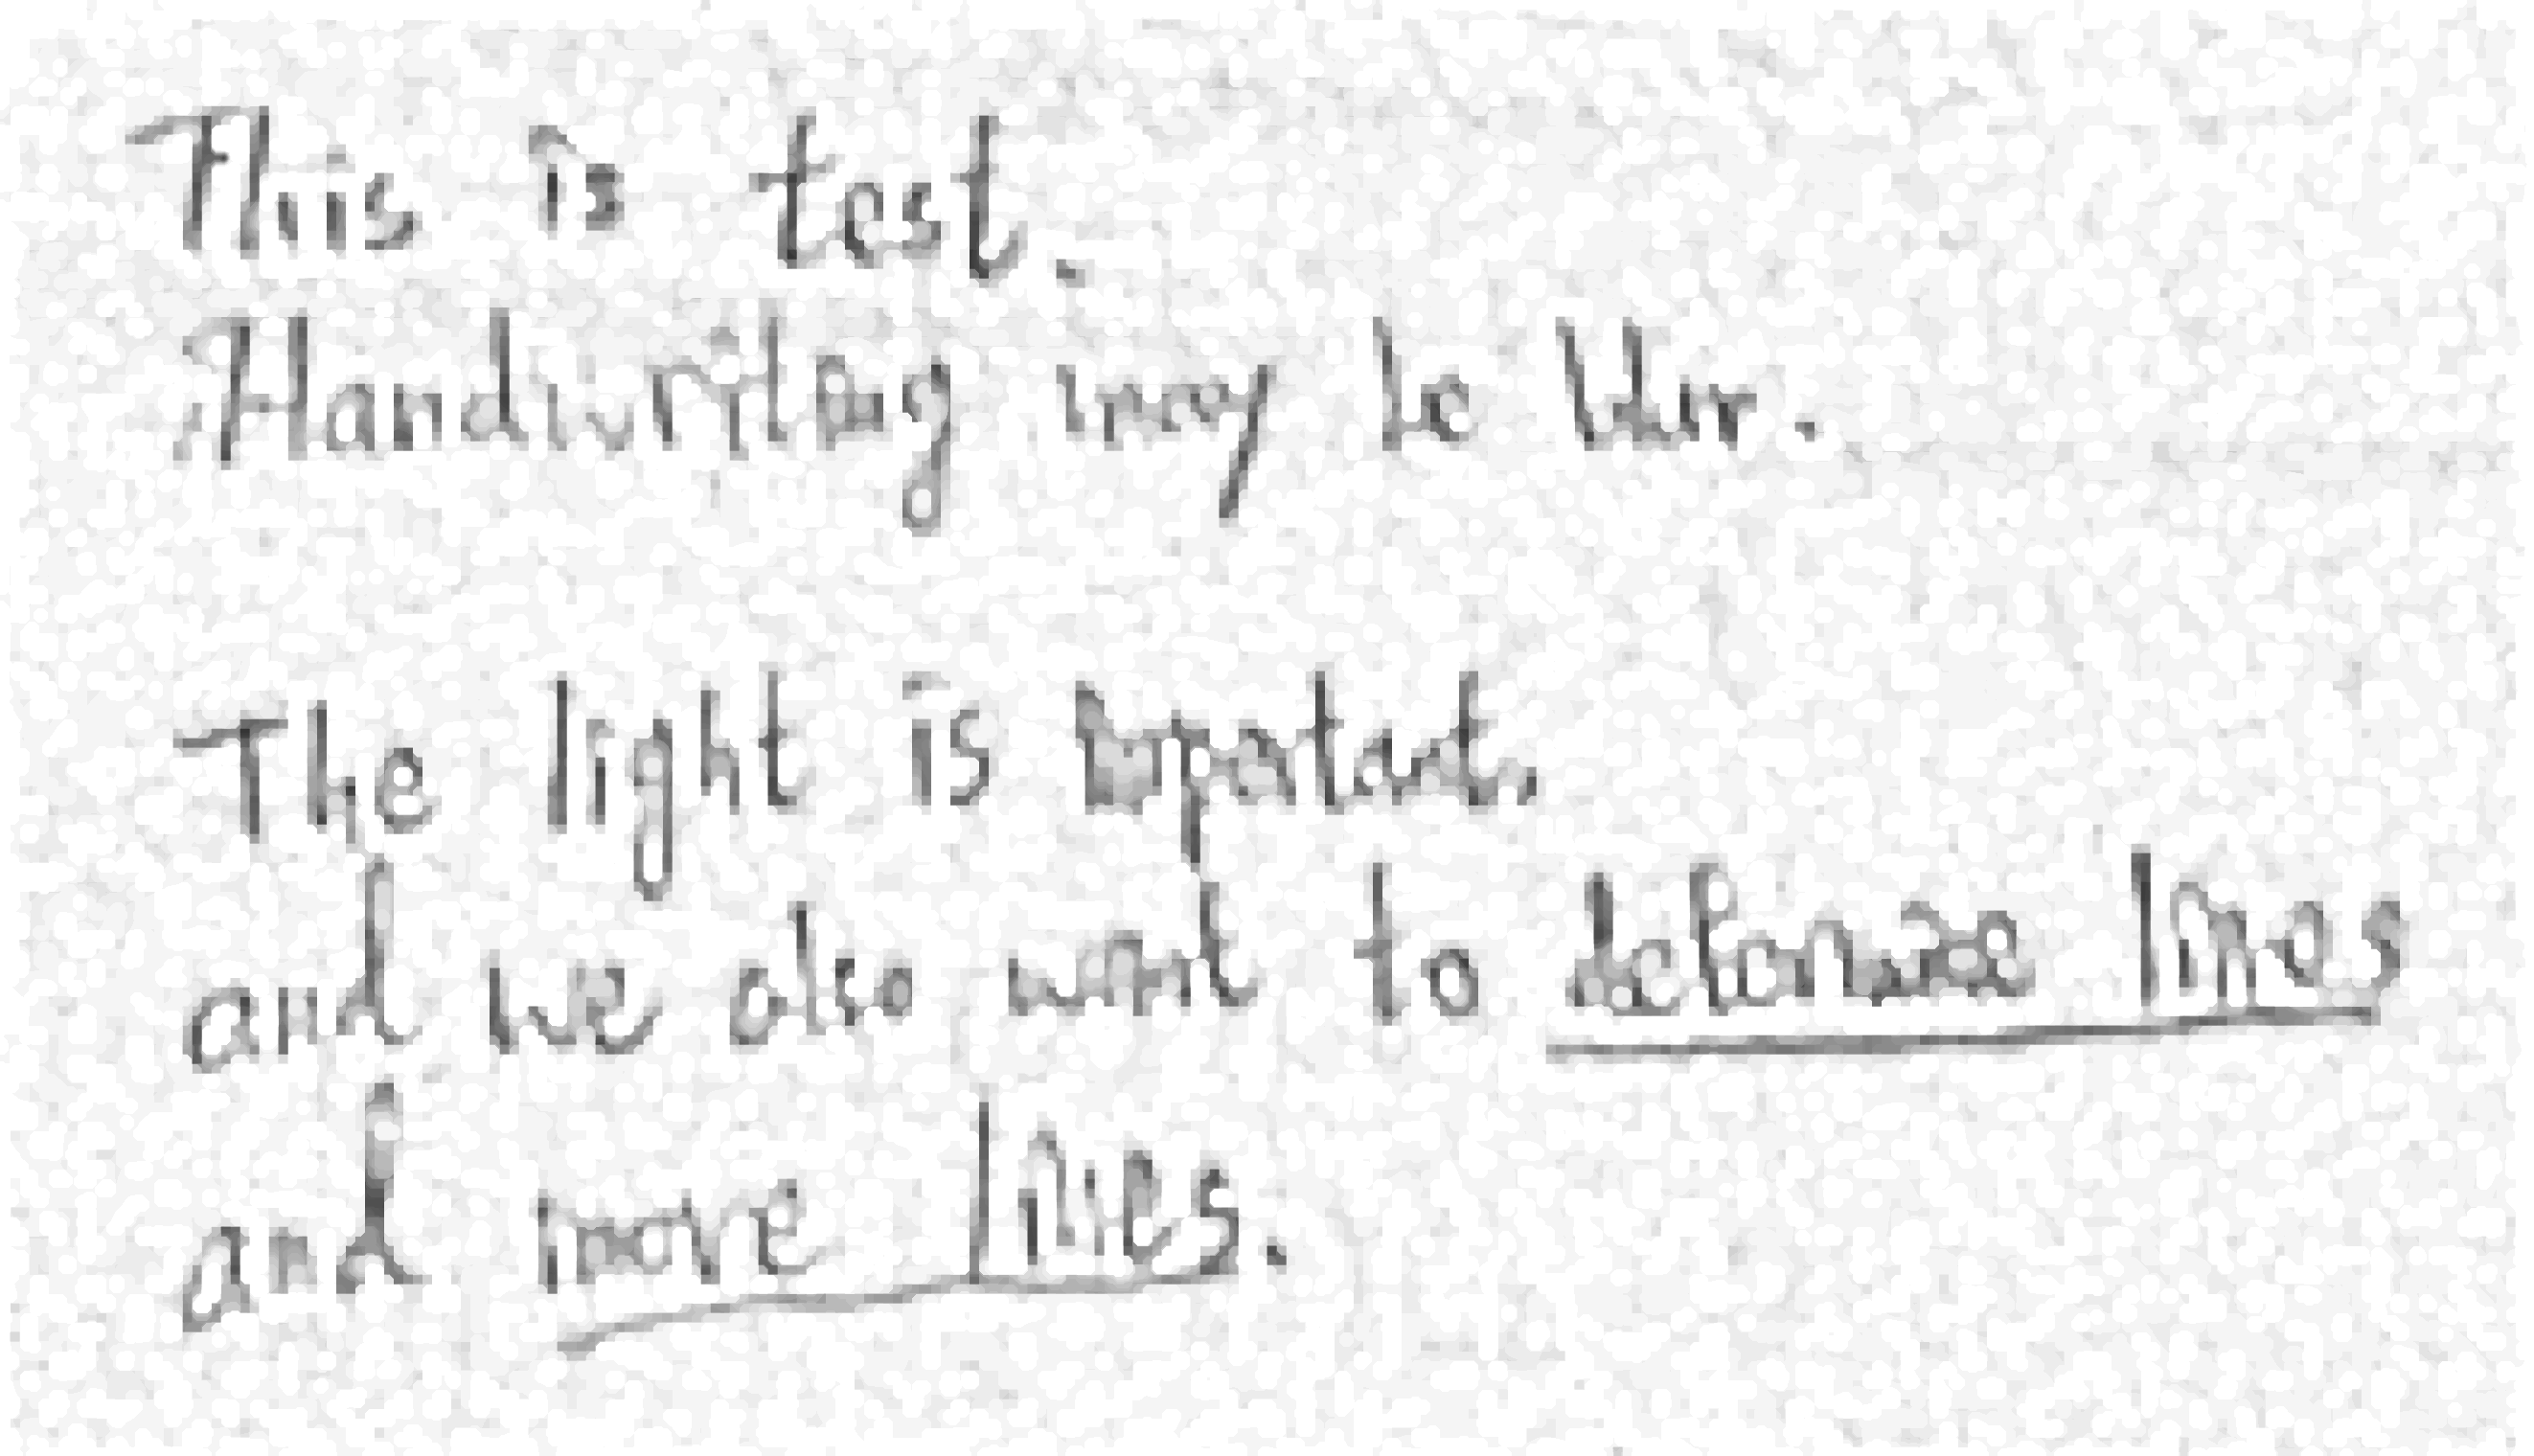 This is test.
Handwriting may be blur.
The light is important,
and we also want to lines
and more lines.